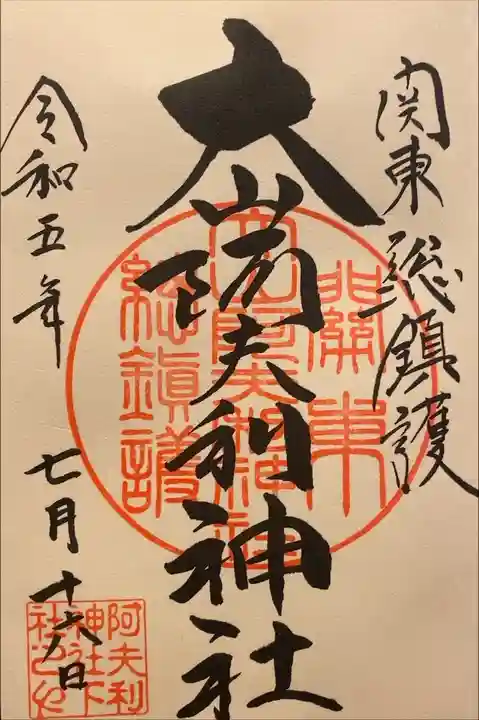 関東総鎮護
大山阿夫利神社
令和五年
七月十六日
關東
大山阿夫利神社
總鎮護
阿夫利
神社下
社